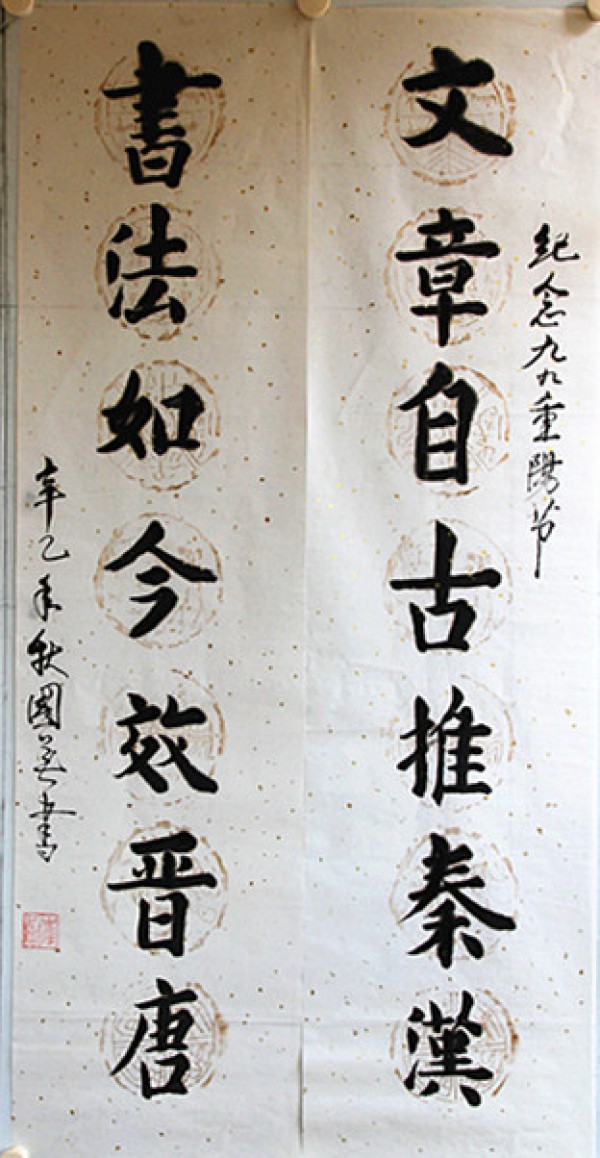 紀念九九重陽节
文章自古推秦漢
書法如今效晋唐
辛乙年秋國書